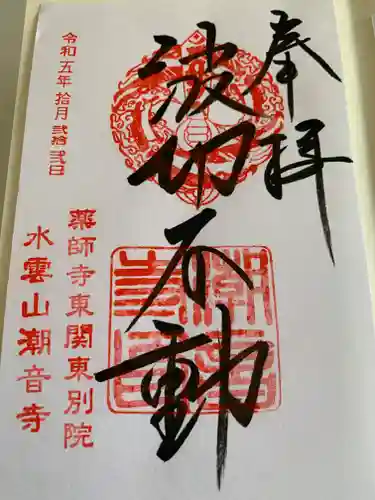 奉拝
波切不動
令和五年拾月弐拾弐日
薬師寺東関東別院
水雲山潮音寺